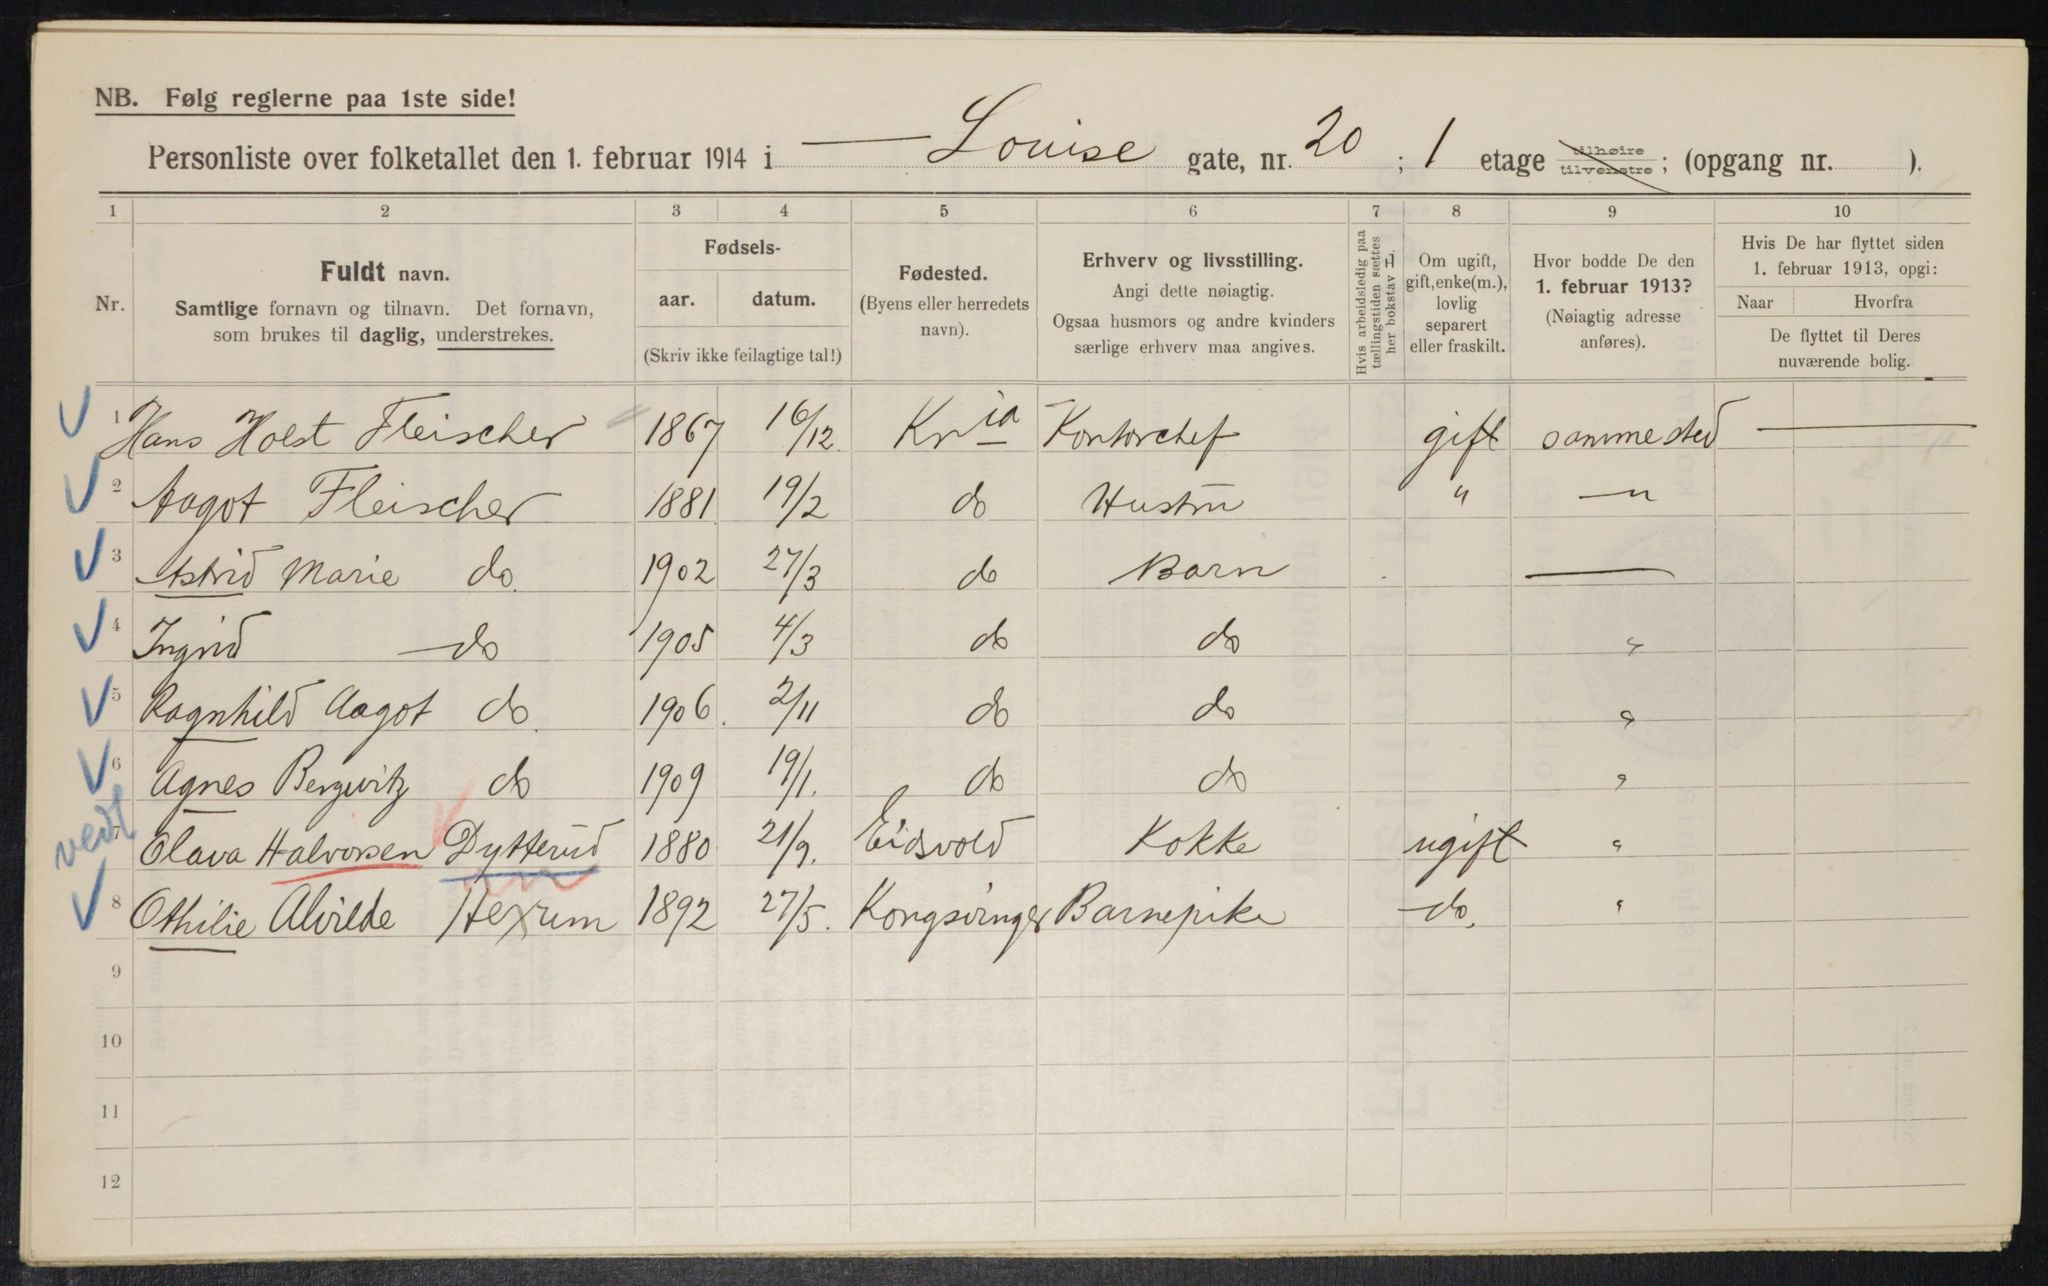 NB. Følg reglerne paa 1ste side!
Personliste over folketallet den 1. februar 1914 i — Louise gate, nr. 20 ; 1 etage tilhøire tilvenstre ; (opgang nr. ).
1 2 3 4 5 6 7 8 9 10
Nr.
Fuldt navn.
Samtlige fornavn og tilnavn. Det fornavn,
som brukes til daglig, understrekes.
Fødsels-
aar. datum.
(Skriv ikke feilagtige tal!)
Fødested.
(Byens eller herredets
navn).
Erhverv og livsstilling.
Angi dette nøiagtig.
Ogsaa husmors og andre kvinders
særlige erhverv maa angives.
Hvis arbeidsledig paa
tællingstiden sættes
her bokstav L.
Om ugift,
gift, enke(m.),
lovlig
separert
eller fraskilt.
Hvor bodde De den
1. februar 1913?
(Nøiagtig adresse
anføres).
Hvis De har flyttet siden
1. februar 1913, opgi:
Naar Hvorfra
De flyttet til Deres
nuværende bolig.
1 Hans Holst Fleischer 1867 16/12. Kr ia Kontorchef gift sammested —
2 Aagot Fleischer 1881 19/2 do Hustru " —"
3 Astrid Marie do. 1902 27/3 do Barn —
4 Ingrid do 1905 4/3 do do "
5 Ragnhild Aagot do. 1906. 2/11 do do "
6 Agnes Bergwitz do 1909 19/1. do do "
vedl
7 Olava Halvorsen Dytterud 1880 21/9. Eidsvold Kokke ugift "
8 Othilie Alvilde Hexum 1892 27/5. Kongsvinger Barnepike do. "
9
10
11
12